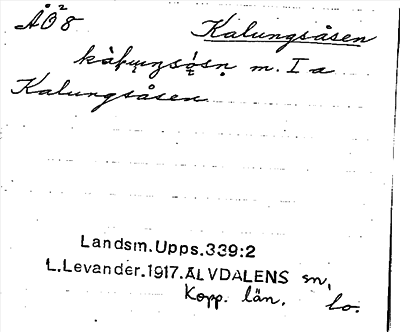 ÅÖ²8 Kalungsåsen
m. I a
Kalungsåsen
Landsm.Upps.339:2
L.Levander.1917.ÄLVDALENS sn,
Kopp. län. lo.